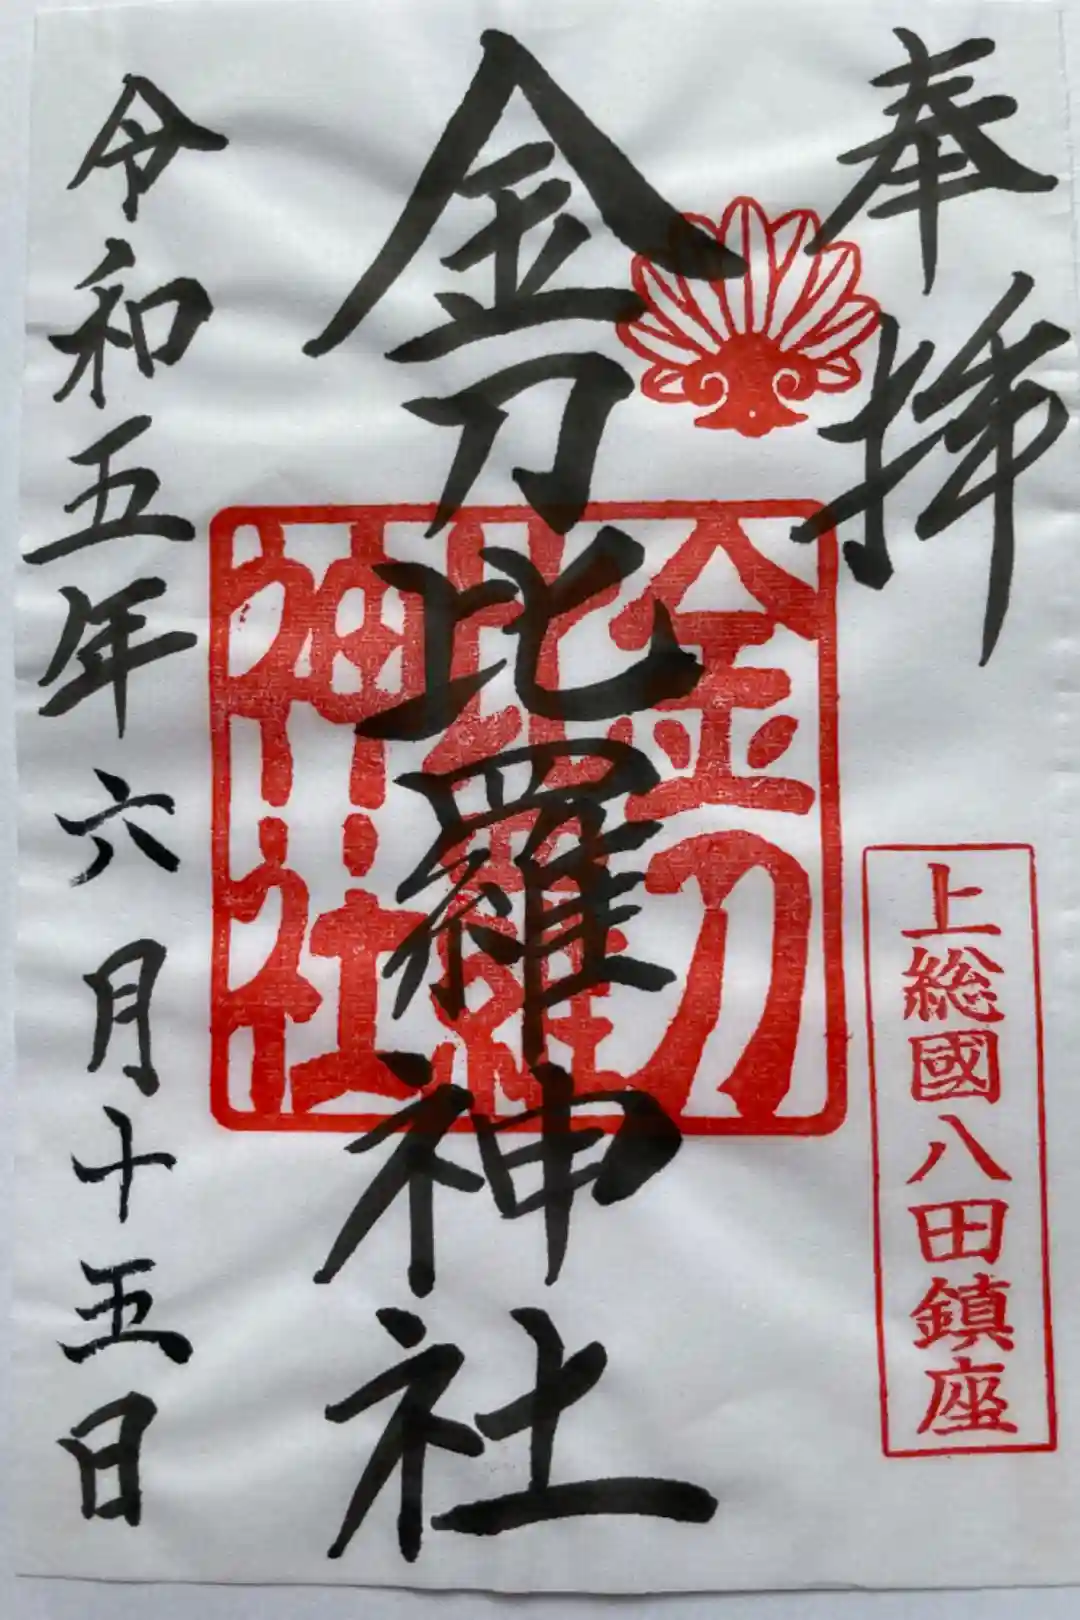 奉拝
上総國八田鎮座
金刀比羅神社
金刀
比羅
神社
令和五年六月十五日